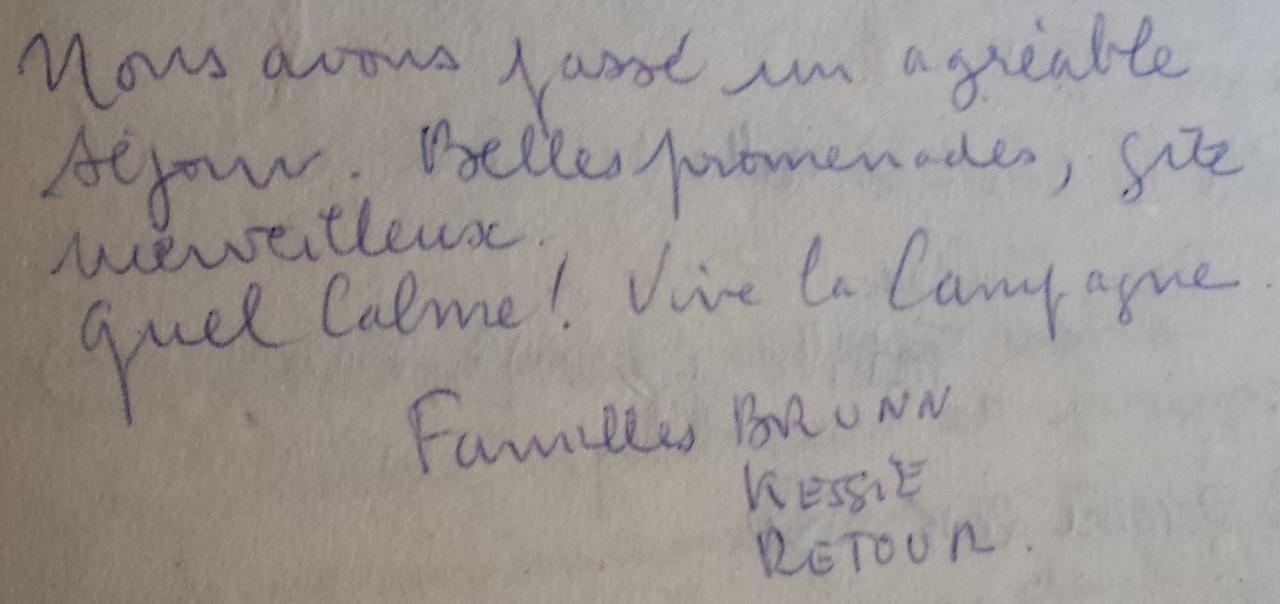 Nous avons passé un agréable
séjour. Belles promenades, gîte
merveilleux.
Quel Calme! Vive la Campagne.
Familles BRUNN
KESSIE
RETOUR.